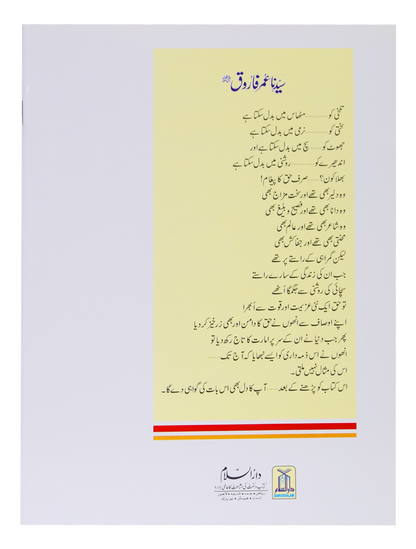 سیدنا عمر فاروق
تلخی کو ........ مٹھاس میں بدل سکتا ہے
سختی کو ........ نرمی میں بدل سکتا ہے
جھوٹ کو ........ سچ میں بدل سکتا ہے اور
اندھیرے کو ........ روشنی میں بدل سکتا ہے
بھلا کون؟ ........ صرف حق کا پیغام!
وہ دلیر بھی تھے اور سخت مزاج بھی
وہ دانا بھی تھے اور فصیح و بلیغ بھی
وہ شاعر بھی تھے اور عالم بھی
محنتی بھی تھے اور جفاکش بھی
لیکن گمراہی کے راستے پر تھے
جب ان کی زندگی کے سارے راستے
سچائی کی روشنی سے جگمگا اُٹھے
تو حق ایک نئی عزیمت اور قوت سے اُبھرا
اپنے اوصاف سے انھوں نے حق کا دامن اور بھی زرخیز کر دیا
پھر جب دنیا نے ان کے سر پر امارت کا تاج رکھ دیا تو
انھوں نے اس ذمہ داری کو ایسے نبھایا کہ آج تک ........
اس کی مثال نہیں ملتی۔
اس کتاب کو پڑھنے کے بعد ........ آپ کا دل بھی اس بات کی گواہی دے گا۔
دارالسلام
دارالسلام
DARUSSALAM